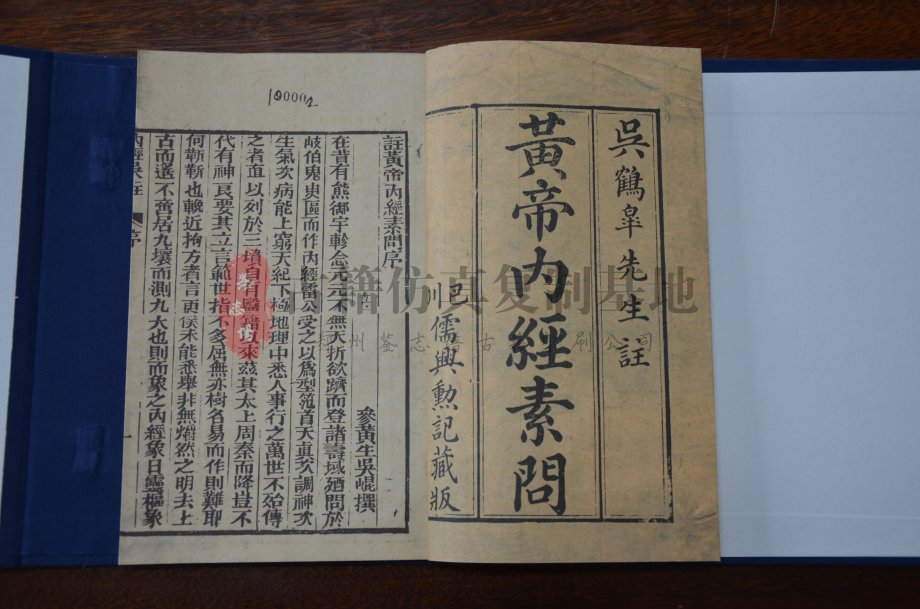 吳鶴皐先生註
黃帝內經素問
邑儒興勲記藏版
190004
註黃帝內經素問序
參黃生吳崐撰
在昔有熊御宇軫念元元不無夭折欲躋而登諸壽域廼問於
岐伯鬼臾區而作內經雷公受之以爲型范首天眞次調神次
生氣次病能上窮天紀下極地理中悉人事行之萬世不殆傳
之者亶以列於三墳自有醫籍以來茲其太上周秦而降豈不
代有神良要其立言範世指不多屈無亦樹名易而作則難耶
何斬斬也輓近拘方者言更僕未能悉舉非無爝然之明去上
古而遙不啻居九壤而測九大也則而象之內經象日靈樞象
序
籍仿真复制基地
州鉴志古刷公司